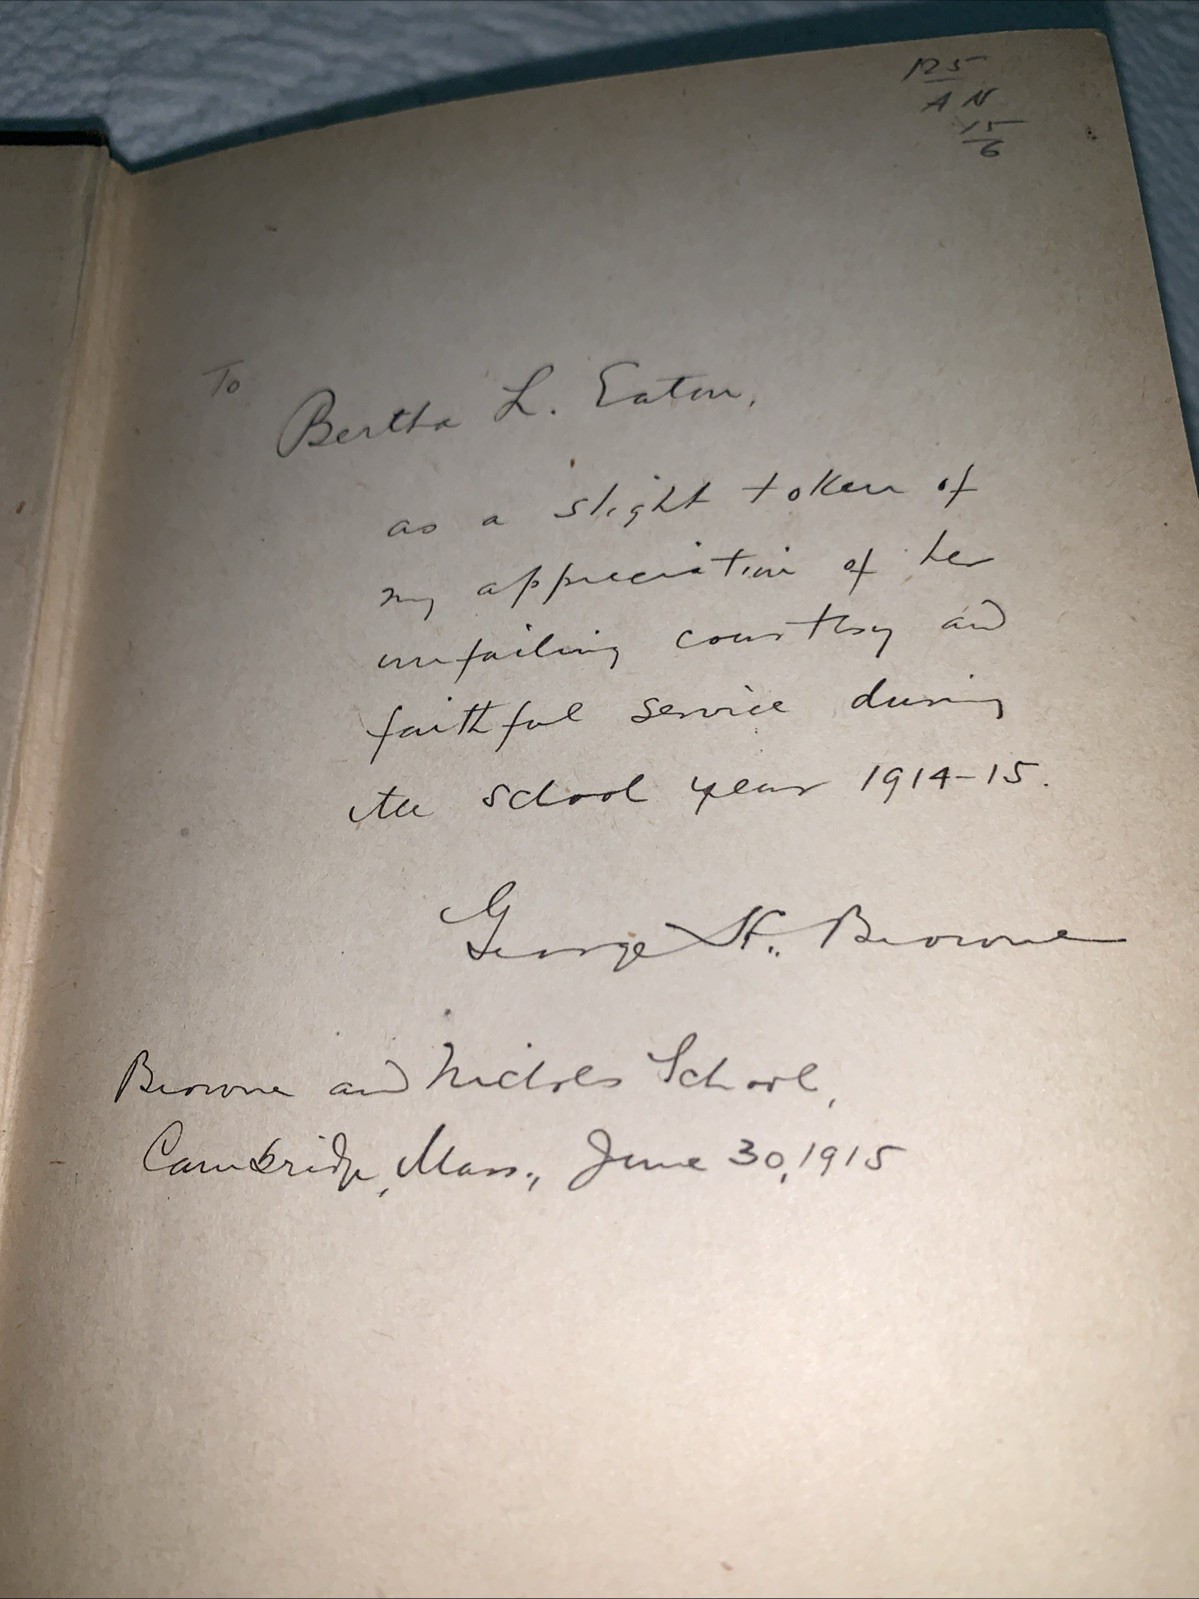 125
A N
15
6
To
Bertha L. Eaton,
as a slight token of
my appreciation of her
unfailing courtesy and
faithful service during
the school year 1914-15.
George H. Browne
Browne and Nichols School,
Cambridge, Mass., June 30, 1915